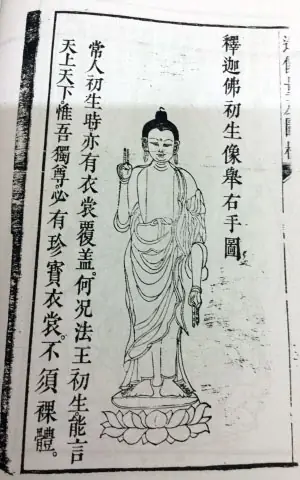 釋迦佛初生像舉右手圖
常人初生時亦有衣裳覆盖。何況法王初生能言
天上天下惟吾獨尊必有珍寶衣裳。不須裸體。